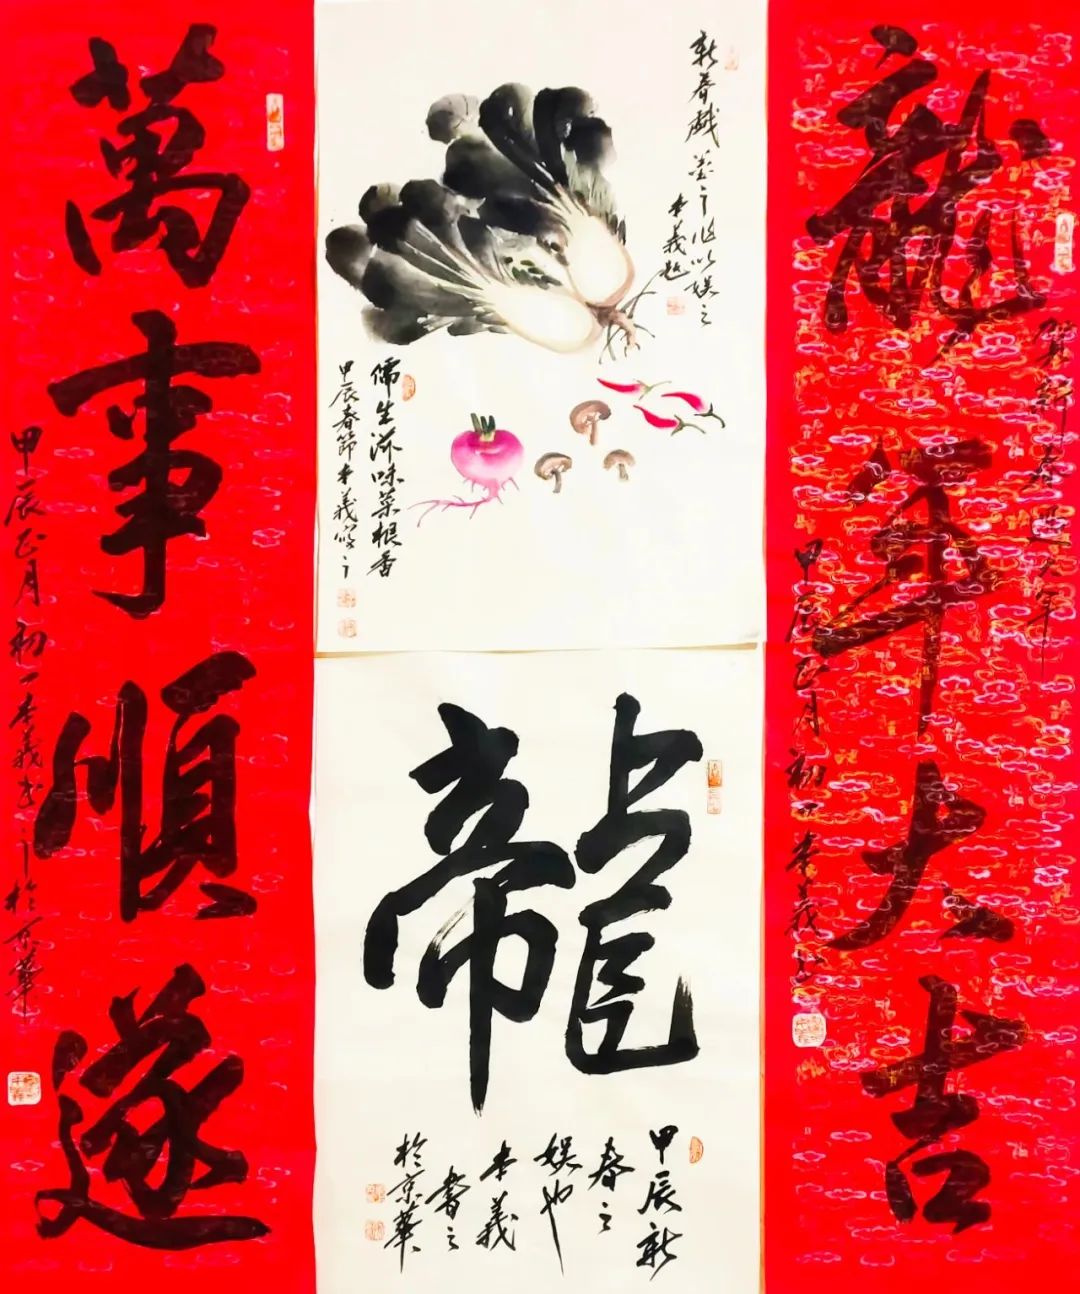 龍年大吉
賀新春大年
甲辰正月初一本義
新春戲墨之作以娛之
本義題
儒生滋味菜根香
甲辰春節本義寫之
龍
甲辰新
春之
娛也
本義
書之
於京華
萬事順遂
甲辰正月初一本義書之於京華